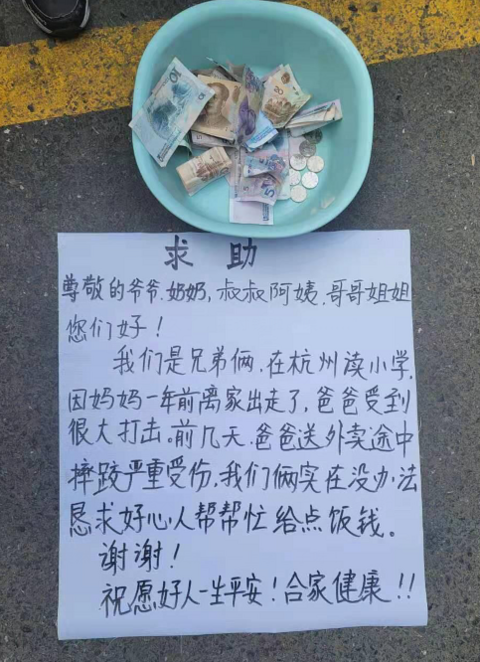 求助
尊敬的爷爷.奶奶,叔叔阿姨.哥哥姐姐
您们好!
我们是兄弟俩.在杭州读小学.
因妈妈一年前离家出走了,爸爸受到
很大打击。前几天.爸爸送外卖途中
摔跤严重受伤.我们俩实在没办法
恳求好心人帮帮忙给点饭钱。
谢谢!
祝愿好人一生平安!合家健康!!